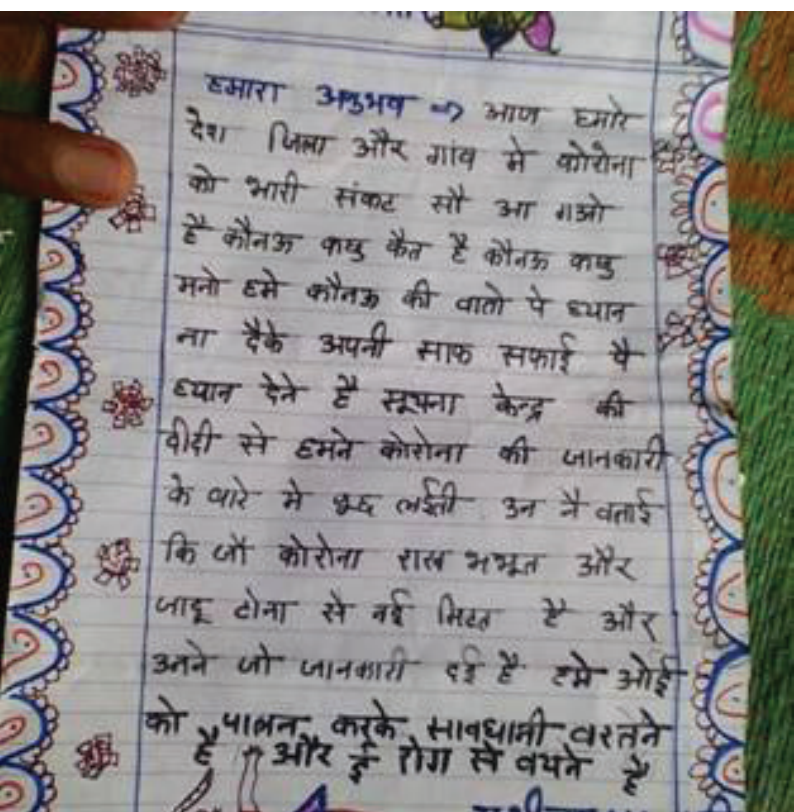 हमारा अनुभव => आज हमारे
देश जिला और गांव मे कोरोना
को भारी संकट सौ आ गओ
है कौनऊ कछु कैत है कौनऊ कछु
मनो हमे कौनऊ की वातो पे ध्यान
ना दैके अपनी साफ सफाई पै
ध्यान देने है सूचना केन्द्र की
दीदी से हमने कोरोना की जानकारी
के वारे मे पूछ लईती उन ने वताई
कि जौ कोरोना राख भभूत और
जादू टोना से नई मिटत है और
उनने जो जानकारी दई है हमे ओई
को पालन करके सावधानी वरतने
है और ई रोग से वचने है